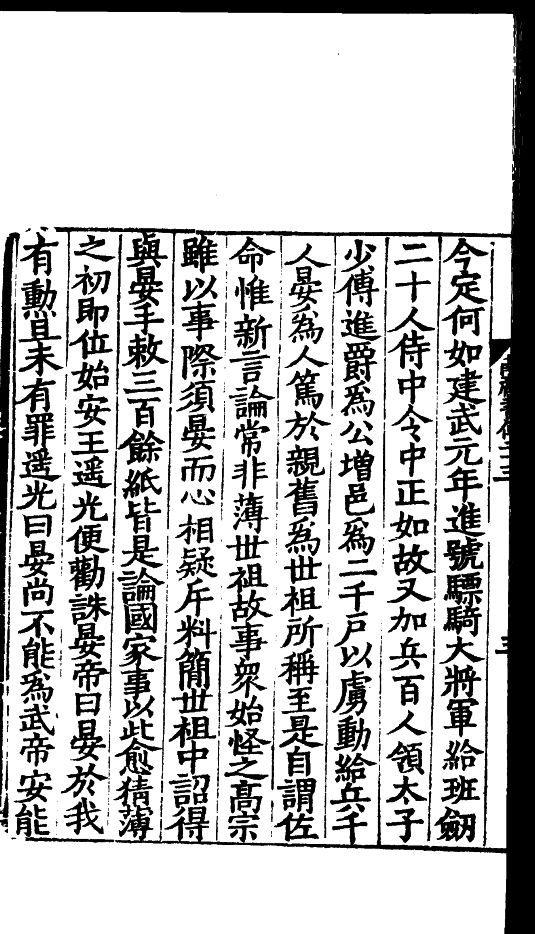 今定何如建武元年進號驃騎大將軍給班劒
二十人侍中令中正如故又加兵百人領太子
少傅進爵爲公増邑爲二千戸以虜動給兵千
人晏爲人篤於親舊爲世祖所稱至是自謂佐
命惟新言論常非薄世祖故事衆始怪之髙宗
雖以事際須晏而心相疑斥料簡世祖中詔得
與晏手敕三百餘紙皆是論國家事以此愈猜薄
之初即位始安王遥光便勸誅晏帝曰晏於我
有勲且未有罪遥光曰晏尚不能爲武帝安能